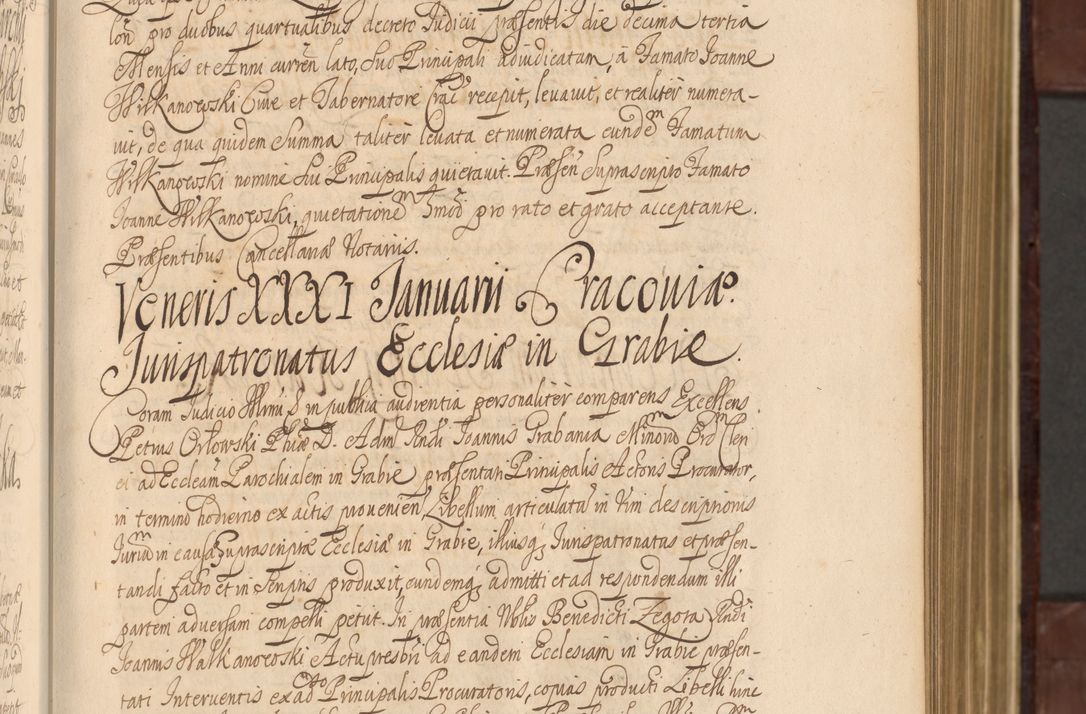 lon pro duobus quartualibus decreto Judicii præsentis die decima tertia
Mensis et Anni curren lato, suo Principali adiudicatam, à Famato Joanne
Wilkanowski Cive et Tabernatore Crac recepit, levavit, et realiter numera-
vit, de qua quidem Summa taliter levata et numerata eundem Famatum
Wilkanowski nomine sui Principalis quietavit. Præsen suprascripto Famato
Joanne Wilkanowski, quietationem pro rato et grato acceptante.
Præsentibus Cancellariæ Notariis.
Veneris XXXI Januarii Cracoviæ.
Jurispatronatus Ecclesiæ in Grabie.
Coram Judicio in publica audientia personaliter comparens Excellens.
Petrus Orłowski Phiæ D. Adm Rndi Joannis Grabania Minorum Ordm Cleri
ci ad Eccleam Parochialem in Grabie præsentati Principalis Actoris Procurator,
in termino hodierno ex actis provenien, Libellum articulatum in vim descriptionis
Jurium in causa suprascriptæ Ecclesiæ in Grabie, illiusq Jurispatronatus et præsen-
tandi facto et in scriptis produxit, eundemq admitti et ad respondendum illi
partem adversam compelli petiit. In præsentia Nobis Benedicti Zegota Rndi
Joannis Walkanowski Actu presbri ad eandem Ecclesiam in Grabie præsen-
tati Interventis ex adto Principalis Procuratoris, copiam producti Libelli hinc